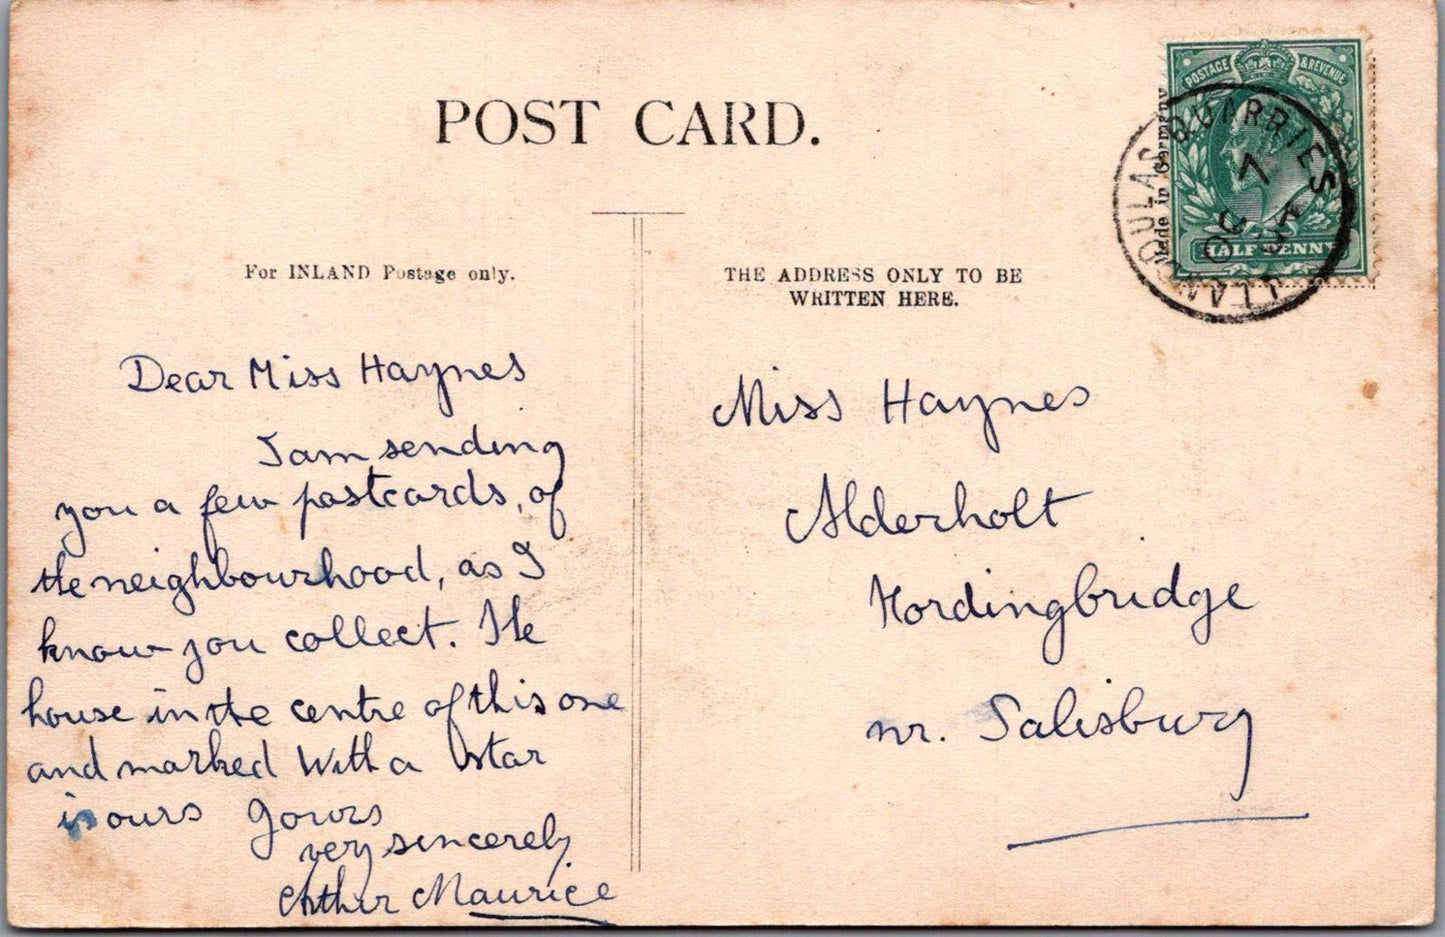 POST CARD.
POSTAGE & REVENUE
HALF PENNY
Made in Germany
QUARRIES
7
For INLAND Postage only.
THE ADDRESS ONLY TO BE
WRITTEN HERE.
Dear Miss Haynes
I am sending
you a few postcards, of
the neighbourhood, as I
know you collect. The
house in the centre of this one
and marked with a star
is ours Yours
very sincerely
Arthur Maurice
Miss Haynes
Alderholt
Fordingbridge
nr. Salisbury